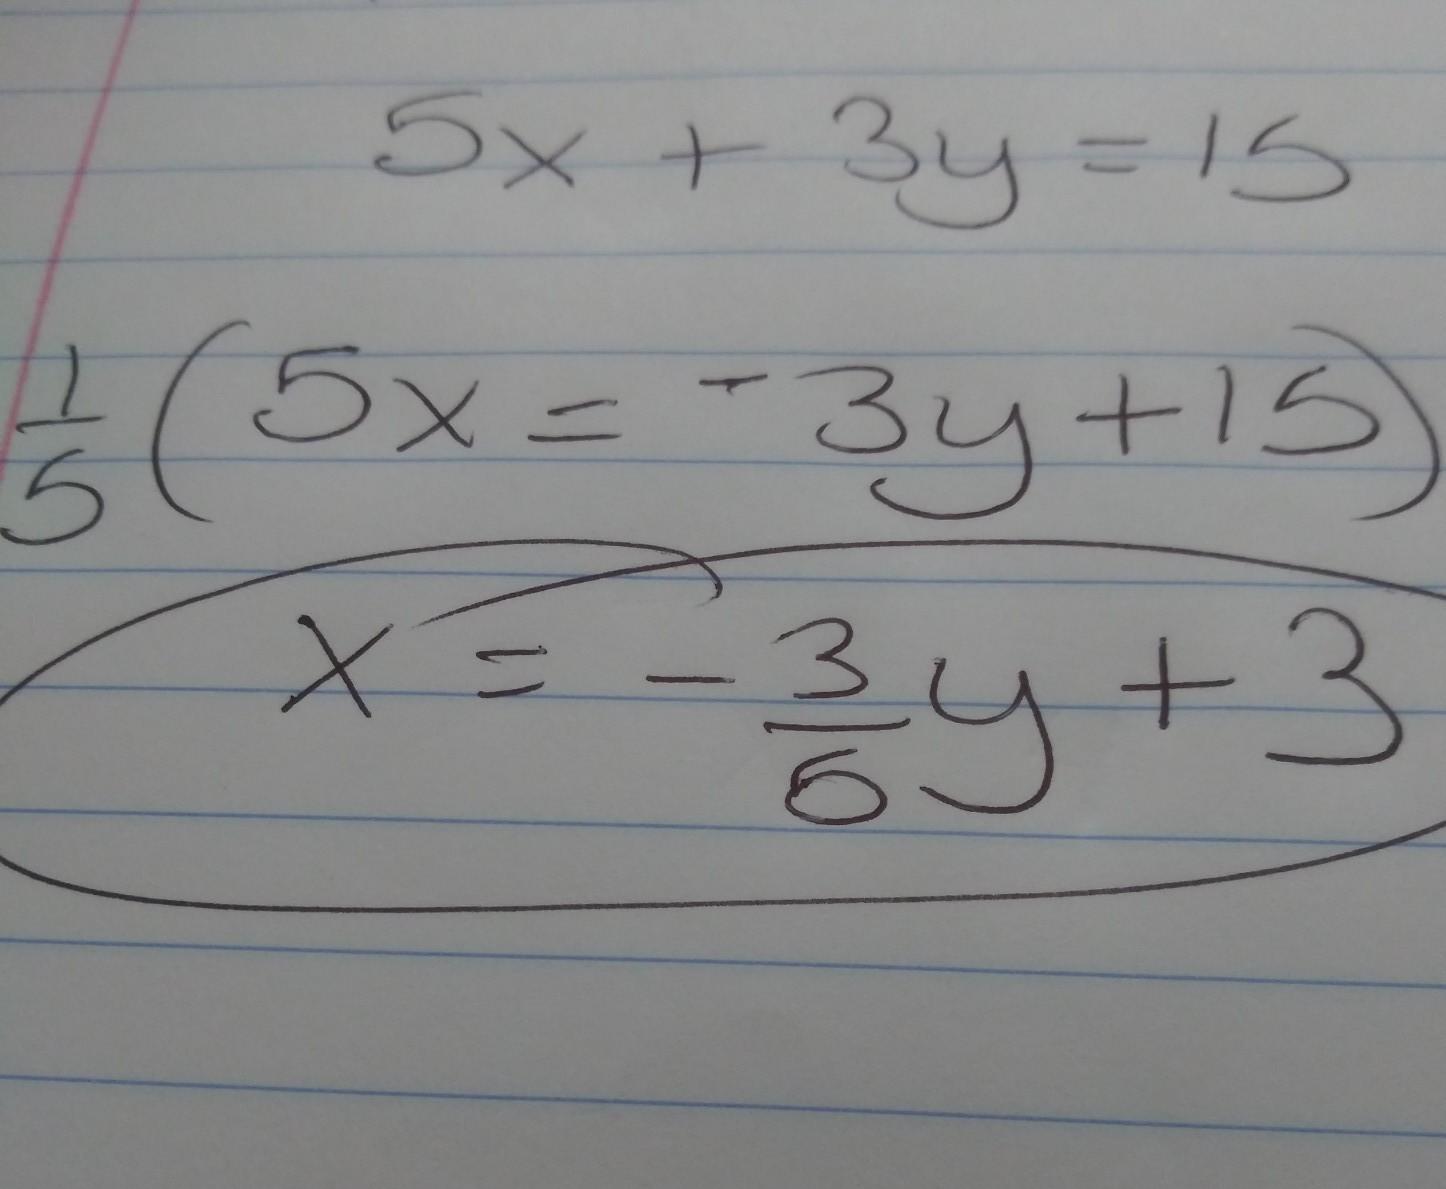 5x + 3y = 15
1/5 (5x = -3y + 15)
x = - 3/5 y + 3